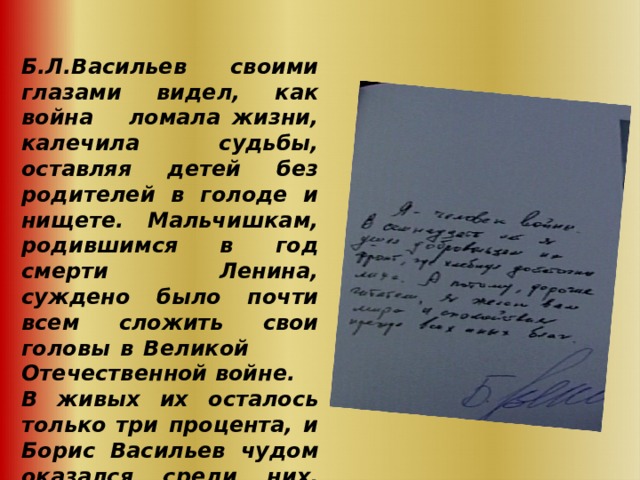 Б.Л.Васильев своими
глазами видел, как
война ломала жизни,
калечила судьбы,
оставляя детей без
родителей в голоде и
нищете. Мальчишкам,
родившимся в год
смерти Ленина,
суждено было почти
всем сложить свои
головы в Великой
Отечественной войне.
В живых их осталось
только три процента, и
Борис Васильев чудом
оказался среди них.
Я - человек войны.
В семнадцать лет я
ушел добровольцем на
фронт, где хлебнул достаточно
лиха. А потому, дорогие
читатели, я желаю вам
мира и спокойствия
прежде всех иных благ.